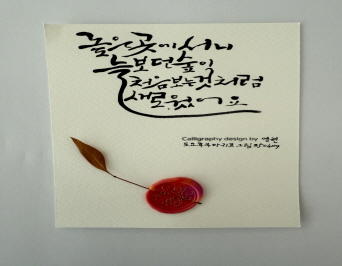 높은곳에서니
늘보던숲이
처음보는것처럼
새로웠어요
Calligraphy design by